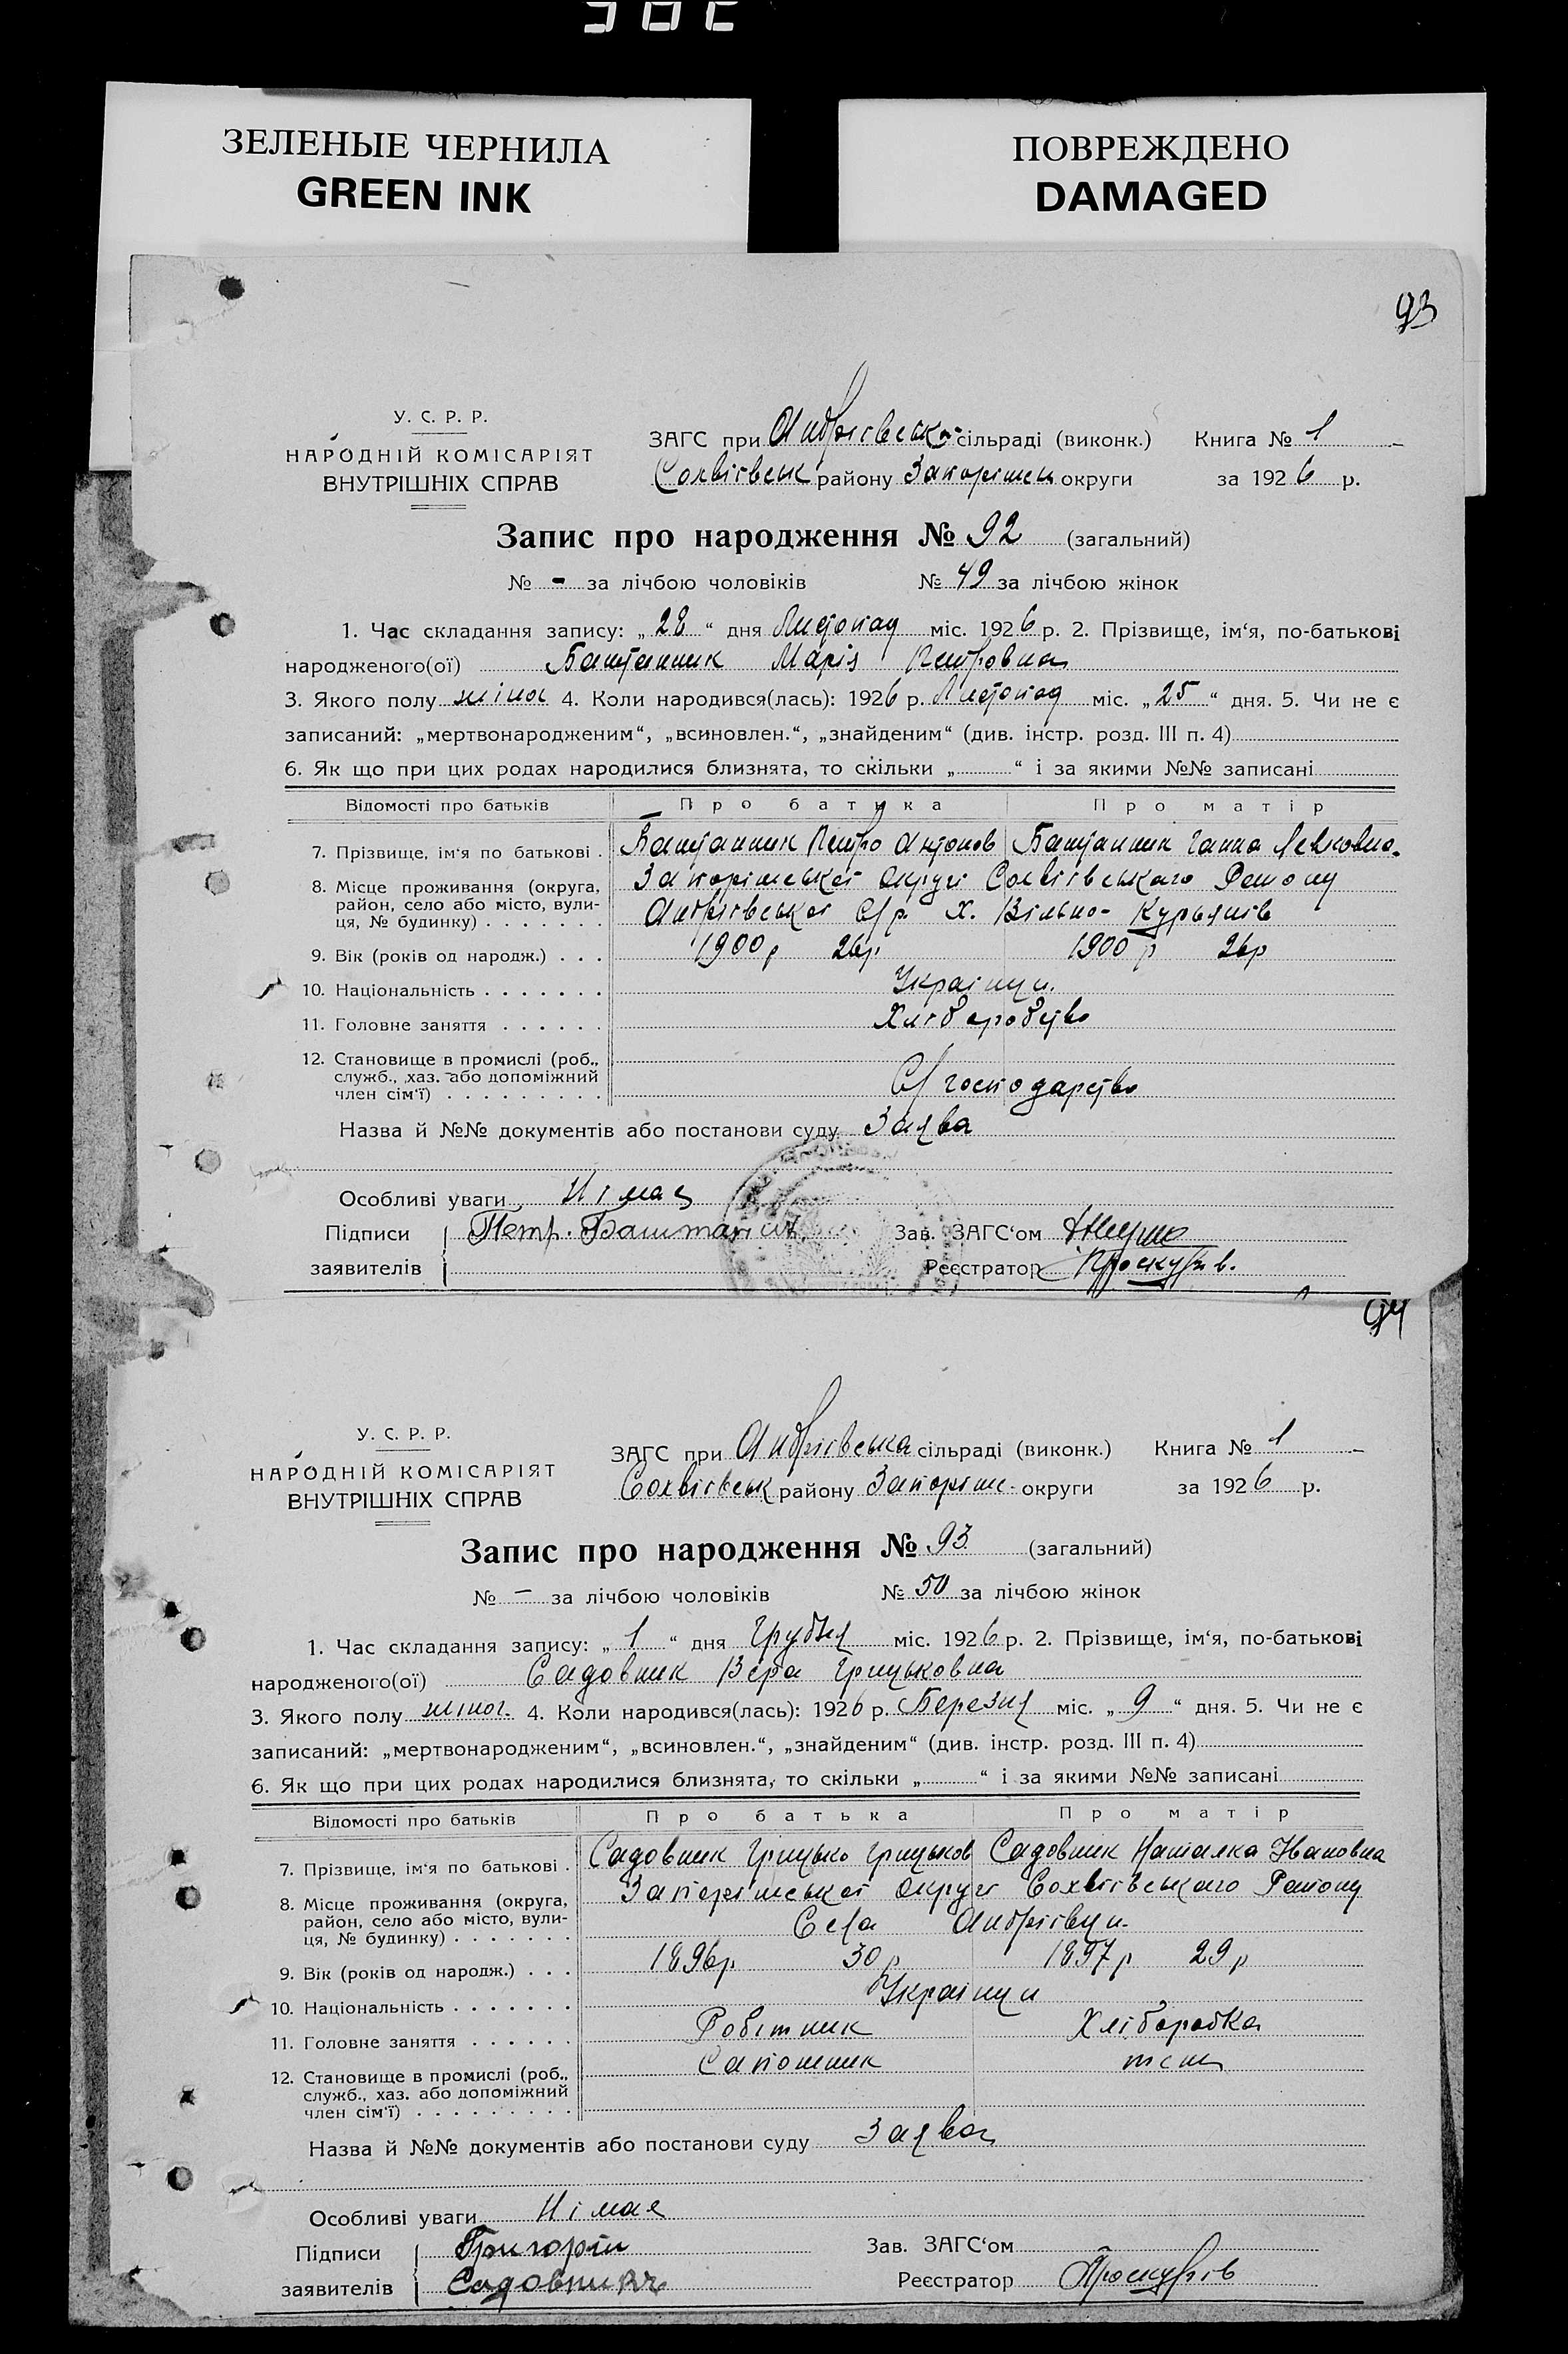 ЗЕЛЕНЫЕ ЧЕРНИЛА
GREEN INK
ПОВРЕЖДЕНО
DAMAGED
93
У. С. Р. Р.
НАРОДНІЙ КОМІСАРІЯТ
ВНУТРІШНІХ СПРАВ
ЗАГС при Андріївська сільраді (виконк.) Книга № 1
Софіївськ району Запоріжськ округи за 1926 р.
Запис про народження № 92 (загальний)
№ - за лічбою чоловіків № 49 за лічбою жінок
1. Час складання запису: „28“ дня Листопад міс. 1926 р. 2. Прізвище, ім‘я, по-батькові
народженого(ої) Баштанник Марія Петровна
3. Якого полу жіноч 4. Коли народився(лась): 1926 р. Листопад міс. „25“ дня. 5. Чи не є
записаний: „мертвонародженим“, „всиновлен.“, „знайденим“ (див. інстр. розд. III п. 4)
6. Як що при цих родах народилися близнята, то скільки „ “ і за якими №№ записані
Відомості про батьків Про батька Про матір
7. Прізвище, ім‘я по батькові . Баштанник Петро Антонов Баштанник Ганна Левковна
8. Місце проживання (округа, Запоріжської округи Софіївського Району
район, село або місто, вули- Андріївської С/р. х. Вільно-
ця, № будинку)
9. Вік (років од народж.) . . . 1900 р 26р. 1900 р 26р
10. Національність Українц.
11. Головне заняття Хліборобство
12. Становище в промислі (роб.,
служб., хаз. або допоміжний С/господарство
член сім‘ї)
Назва й №№ документів або постанови суду Заява
Особливі уваги Німає
Підписи Петр. Баштаник Зав. ЗАГС‘ом
заявителів Реєстратор Проскурів.
94
У. С. Р. Р.
НАРОДНІЙ КОМІСАРІЯТ
ВНУТРІШНІХ СПРАВ
ЗАГС при Андріївська сільраді (виконк.) Книга № 1
Софіївськ району Запоріж. округи за 1926 р.
Запис про народження № 93 (загальний)
№ – за лічбою чоловіків № 50 за лічбою жінок
1. Час складання запису: „1“ дня Грудня міс. 1926 р. 2. Прізвище, ім‘я, по-батькові
народженого(ої) Садовник Вера Грицьковна
3. Якого полу жіноч. 4. Коли народився(лась): 1926 р. Березня міс. „9“ дня. 5. Чи не є
записаний: „мертвонародженим“, „всиновлен.“, „знайденим“ (див. інстр. розд. III п. 4)
6. Як що при цих родах народилися близнята, то скільки „ “ і за якими №№ записані
Відомості про батьків Про батька Про матір
7. Прізвище, ім‘я по батькові . Садовник Грицько Грицьков Садовник Наталка Ивановна
8. Місце проживання (округа, Запоріжської округи Софіївського Району
район, село або місто, вули- Села Андріївки.
ця, № будинку)
9. Вік (років од народж.) . . . 1896р. 30 р 1897 р 29 р
10. Національність Українц
11. Головне заняття Робітник Хліборобка
12. Становище в промислі (роб., Сапожник теж
служб., хаз. або допоміжний
член сім‘ї)
Назва й №№ документів або постанови суду Заява
Особливі уваги Німає
Підписи Григорій Зав. ЗАГС‘ом
заявителів Садовник Реєстратор Проскурів